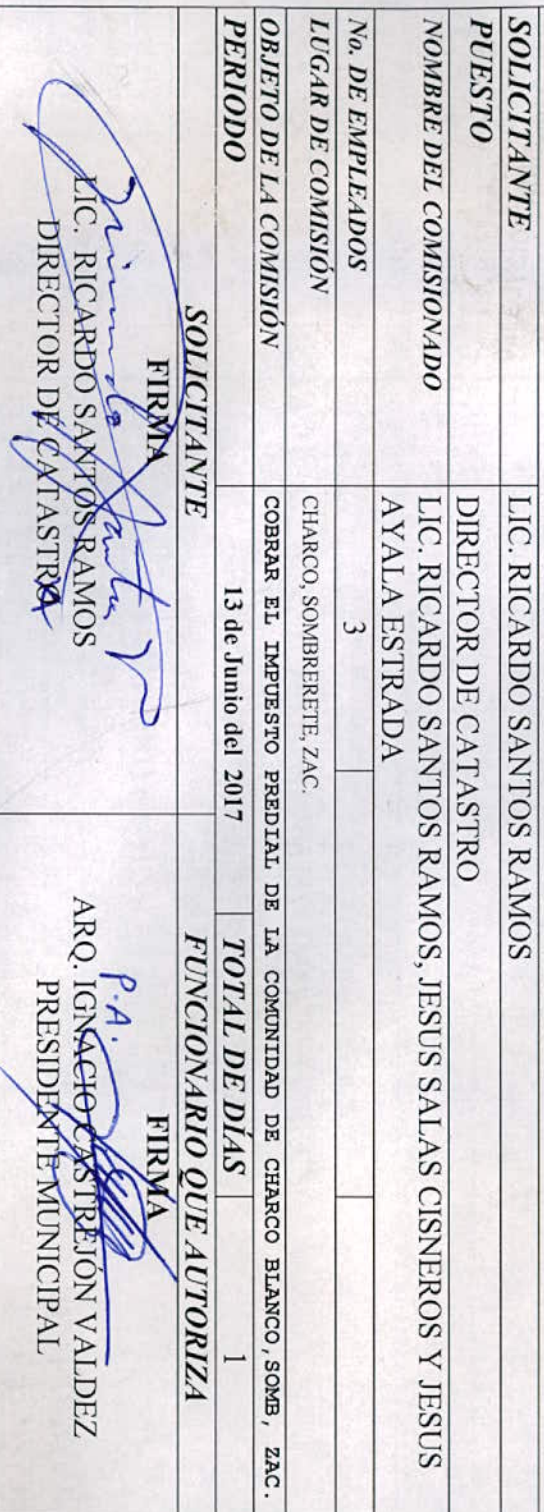 SOLICITANTE LIC. RICARDO SANTOS RAMOS
PUESTO DIRECTOR DE CATASTRO
NOMBRE DEL COMISIONADO LIC. RICARDO SANTOS RAMOS, JESUS SALAS CISNEROS Y JESUS
AYALA ESTRADA
No. DE EMPLEADOS 3
LUGAR DE COMISIÓN CHARCO, SOMBRERETE, ZAC.
OBJETO DE LA COMISIÓN COBRAR EL IMPUESTO PREDIAL DE LA COMUNIDAD DE CHARCO BLANCO, SOMB, ZAC.
PERIODO 13 de Junio del 2017 TOTAL DE DÍAS 1
SOLICITANTE FUNCIONARIO QUE AUTORIZA
FIRMA FIRMA
P.A.
LIC. RICARDO SANTOS RAMOS ARQ. IGNACIO CASTREJÓN VALDEZ
DIRECTOR DE CATASTRO PRESIDENTE MUNICIPAL